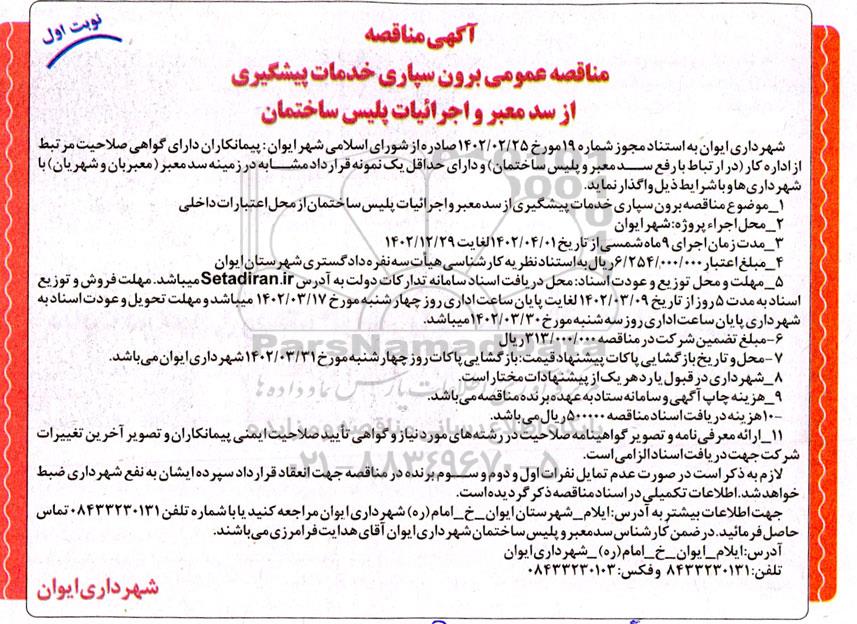 نوبت اول
آگهی مناقصه
مناقصه عمومی برون سپاری خدمات پیشگیری
از سد معبر و اجرائیات پلیس ساختمان
شهرداری ایوان به استناد مجوز شماره ۱۹مورخ ۱۴۰۲/۰۲/۲۵صادره از شورای اسلامی شهر ایوان: پیمانکاران دارای گواهی صلاحیت مرتبط
از اداره کار (در ارتباط با رفع سد معبر و پلیس ساختمان) و دارای حداقل یک نمونه قرارداد مشابه در زمینه سد معبر (معبربان و شهربان) با
شهرداری ها و با شرایط ذیل واگذار نماید.
۱_موضوع مناقصه برون سپاری خدمات پیشگیری از سد معبر و اجرائیات پلیس ساختمان از محل اعتبارات داخلی
۲_محل اجراء پروژه: شهر ایوان
۳_مدت زمان اجرای ۹ ماه شمسی از تاریخ ۱۴۰۲/۰۴/۰۱لغایت ۱۴۰۲/۱۲/۲۹
۴_مبلغ اعتبار ۶/۲۵۴/۰۰۰/۰۰۰ریال به استناد نظریه کارشناسی هیأت سه نفره دادگستری شهرستان ایوان
۵_مهلت و محل توزیع و عودت اسناد: محل دریافت اسناد سامانه تدارکات دولت به آدرس Setadiran.ir میباشد. مهلت فروش و توزیع
اسناد به مدت ۵ روز از تاریخ ۱۴۰۲/۰۳/۰۹ لغایت پایان ساعت اداری روز چهارشنبه مورخ ۱۴۰۲/۰۳/۱۷ میباشد و مهلت تحویل و عودت اسناد به
شهرداری پایان ساعت اداری روز سه شنبه مورخ ۱۴۰۲/۰۳/۳۰میباشد.
۶-مبلغ تضمین شرکت در مناقصه ۳۱۳/۰۰۰/۰۰۰ریال
۷-محل و تاریخ بازگشایی پاکات پیشنهاد قیمت: بازگشایی پاکات روز چهارشنبه مورخ ۱۴۰۲/۰۳/۳۱شهرداری ایوان می باشد.
۸_شهرداری در قبول یا رد هر یک از پیشنهادات مختار است.
۹_هزینه چاپ آگهی و سامانه ستاد به عهده برنده مناقصه می باشد.
-۱۰هزینه دریافت اسناد مناقصه ۵۰۰۰۰۰ریال می باشد.
۱۱_ارائه معرفی نامه و تصویر گواهینامه صلاحیت در رشته های مورد نیاز و گواهی تأیید صلاحیت ایمنی پیمانکاران و تصویر آخرین تغییرات
شرکت جهت دریافت اسناد الزامی است.
لازم به ذکر است در صورت عدم تمایل نفرات اول و دوم و سوم برنده در مناقصه جهت انعقاد قرارداد سپرده ایشان به نفع شهرداری ضبط
خواهد شد. اطلاعات تکمیلی در اسناد مناقصه ذکر گردیده است.
جهت اطلاعات بیشتر به آدرس: ایلام_شهرستان ایوان_خ_امام(ره) شهرداری ایوان مراجعه کنید یا با شماره تلفن ۰۸۴۳۳۲۳۰۱۳۱تماس
حاصل فرمائید. در ضمن کارشناس سد معبر و پلیس ساختمان شهرداری ایوان آقای هدایت فرامرزی می باشند.
آدرس: ایلام_ایوان_خ_امام(ره)_شهرداری ایوان
تلفن: ۰۸۴۳۳۲۳۰۱۳۱ و فکس: ۰۸۴۳۳۲۳۰۱۰۳
شهرداری ایوان
ParsNamad
پایگاه اطلاع رسانی مناقصه و مزایده
۰۲۱-۸۸۳۴۹۶۷۰-۵